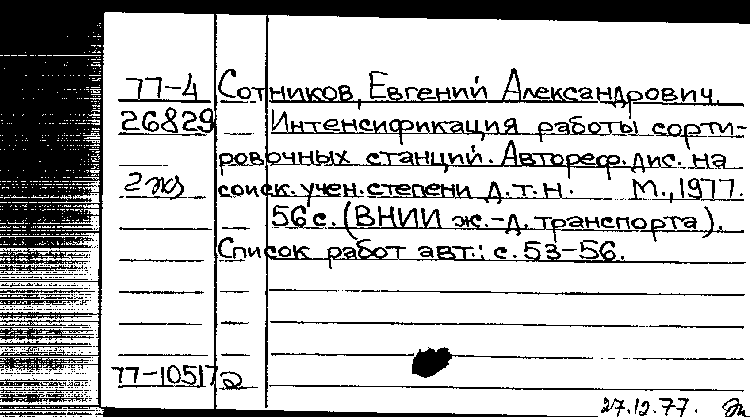 77-4 Сотников, Евгений Александрович.
26829 Интенсификация работы сорти-
ровочных станций. Автореф. дис. на
2 экз соиск. учен. степени д.т.н. М., 1977.
56 с. (ВНИИ ж.-д. транспорта).
Список работ авт.: с. 53-56.
77-10517
27.12.77.